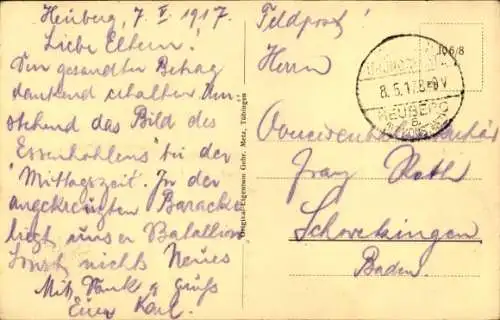 Heuberg, 7. V. 1917.
Liebe Eltern!
Den gesandten Betrag
dankend erhalten. Um-
stehend das Bild des
"Essenhohlens" bei der
"Mittagszeit". In der
angekreuzten Baracke
liegt unser Batallion
Sonst nichts Neues
Mit Dank & Gruß
Euer Karl.
Original-Eigentum Gebr. Metz, Tübingen
Feldpost!
Herrn
Franz Roth
Schwetzingen
Baden.
106/8
8.5.17.8-9V
HEUBERG